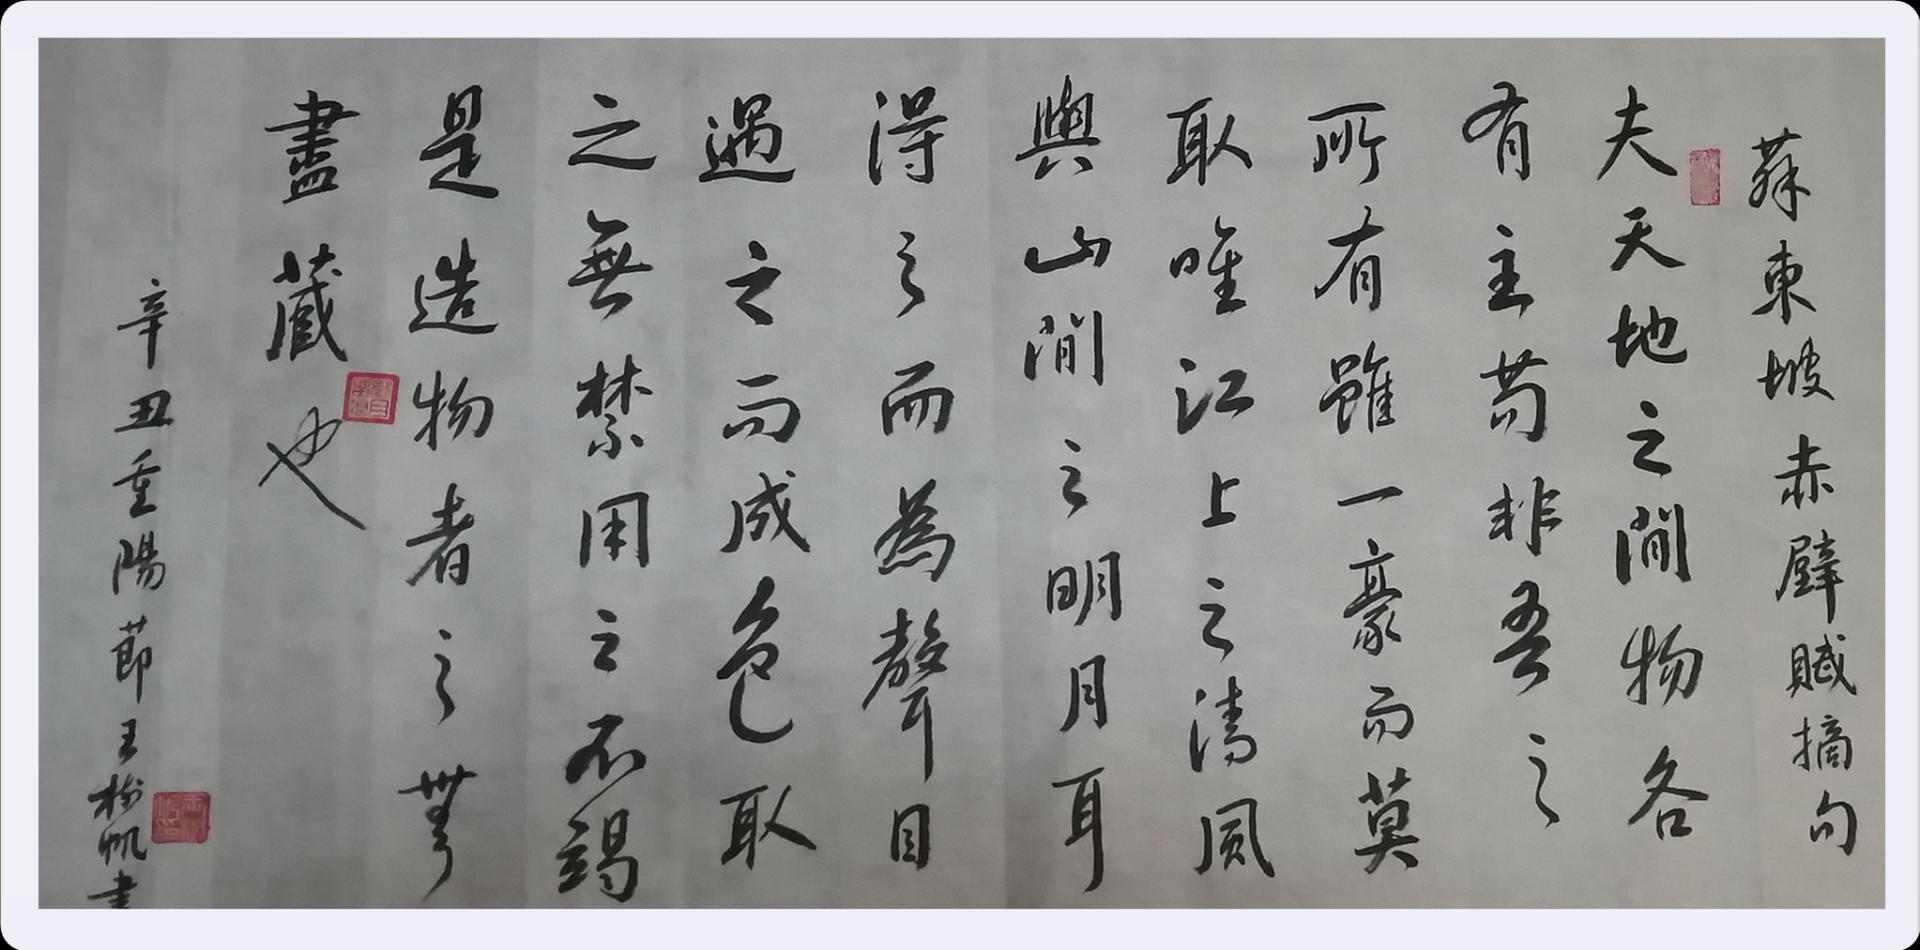 蘇東坡赤壁賦摘句
夫天地之間物各
有主苟非吾之
所有雖一豪而莫
取唯江上之清風
與山間之明月耳
得之而為聲目
遇之而成色取
之無禁用之不竭
是造物者之無
盡藏也
辛丑重陽節王柏帆書